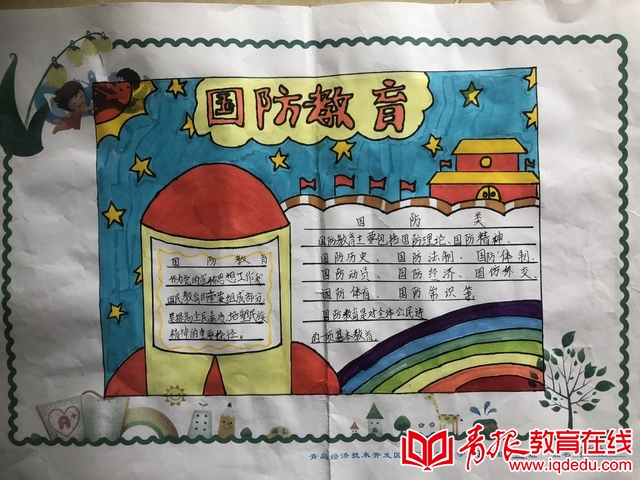 国防教育
国 防 教育
作为党的思想工作和
国民教育的重要组成部分
是提高全民素质、培养民族
精神的重要途径。
国 防 类
国防教育主要包括国防理论、国防精神、
国防历史、国防法制、国防体制、
国防动员、国防经济、国防外交、
国防体育、国防常识等
国防教育是对全体公民进
的一项基本教育。
A+
青岛经济技术开发区
青报教育在线
www.iqdedu.com